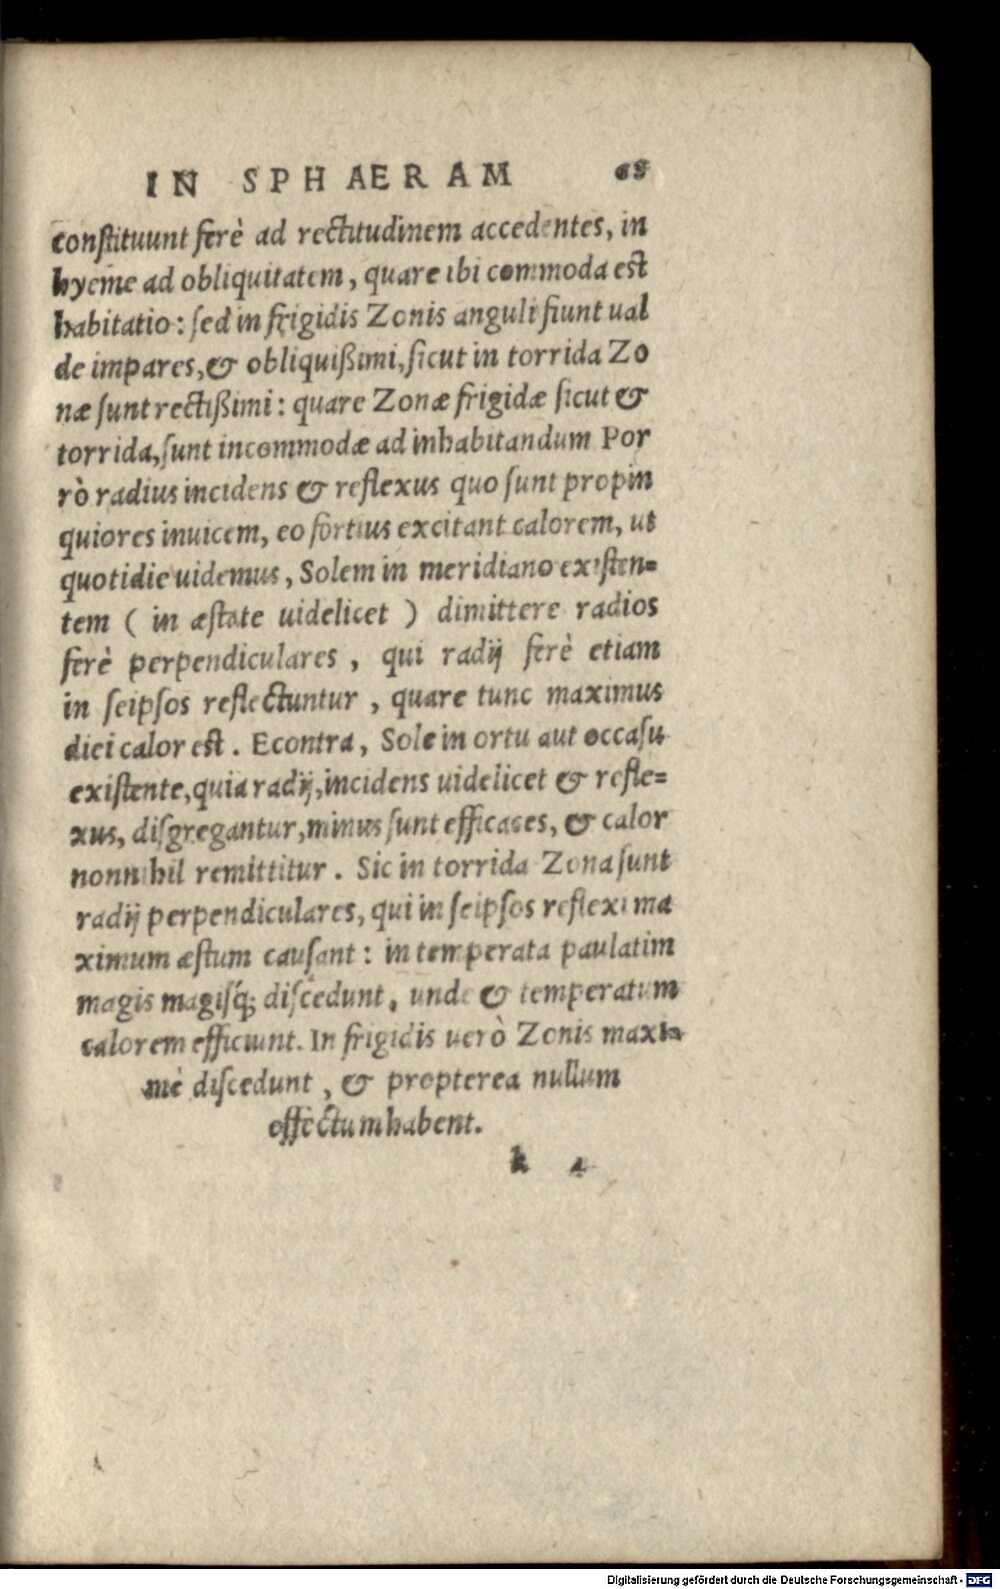 IN SPHAERAM 68
constituunt ferè ad rectitudinem accedentes, in
hyeme ad obliquitatem, quare ibi commoda est
habitatio: sed in frigidis Zonis anguli fiunt ual
de impares, & obliquißimi, sicut in torrida Zo
næ sunt rectißimi: quare Zonæ frigidæ sicut &
torrida, sunt incommodæ ad inhabitandum Por
rò radius incidens & reflexus quo sunt propin
quiores inuicem, eo fortius excitant calorem, ut
quotidie uidemus, Solem in meridiano existen=
tem ( in æstate uidelicet ) dimittere radios
ferè perpendiculares, qui radij ferè etiam
in seipsos reflectuntur, quare tunc maximus
diei calor est. Econtra, Sole in ortu aut occasu
existente, quia radij, incidens uidelicet & refle=
xus, disgregantur, minus sunt efficaces, & calor
nonnihil remittitur. Sic in torrida Zona sunt
radij perpendiculares, qui in seipsos reflexi ma
ximum æstum causant: in temperata paulatim
magis magisq́; discedunt, unde & temperatum
calorem efficiunt. In frigidis uerò Zonis maxi=
mè discedunt, & propterea nullum
effectum habent.
k 4
Digitalisierung gefördert durch die Deutsche Forschungsgemeinschaft - DFG